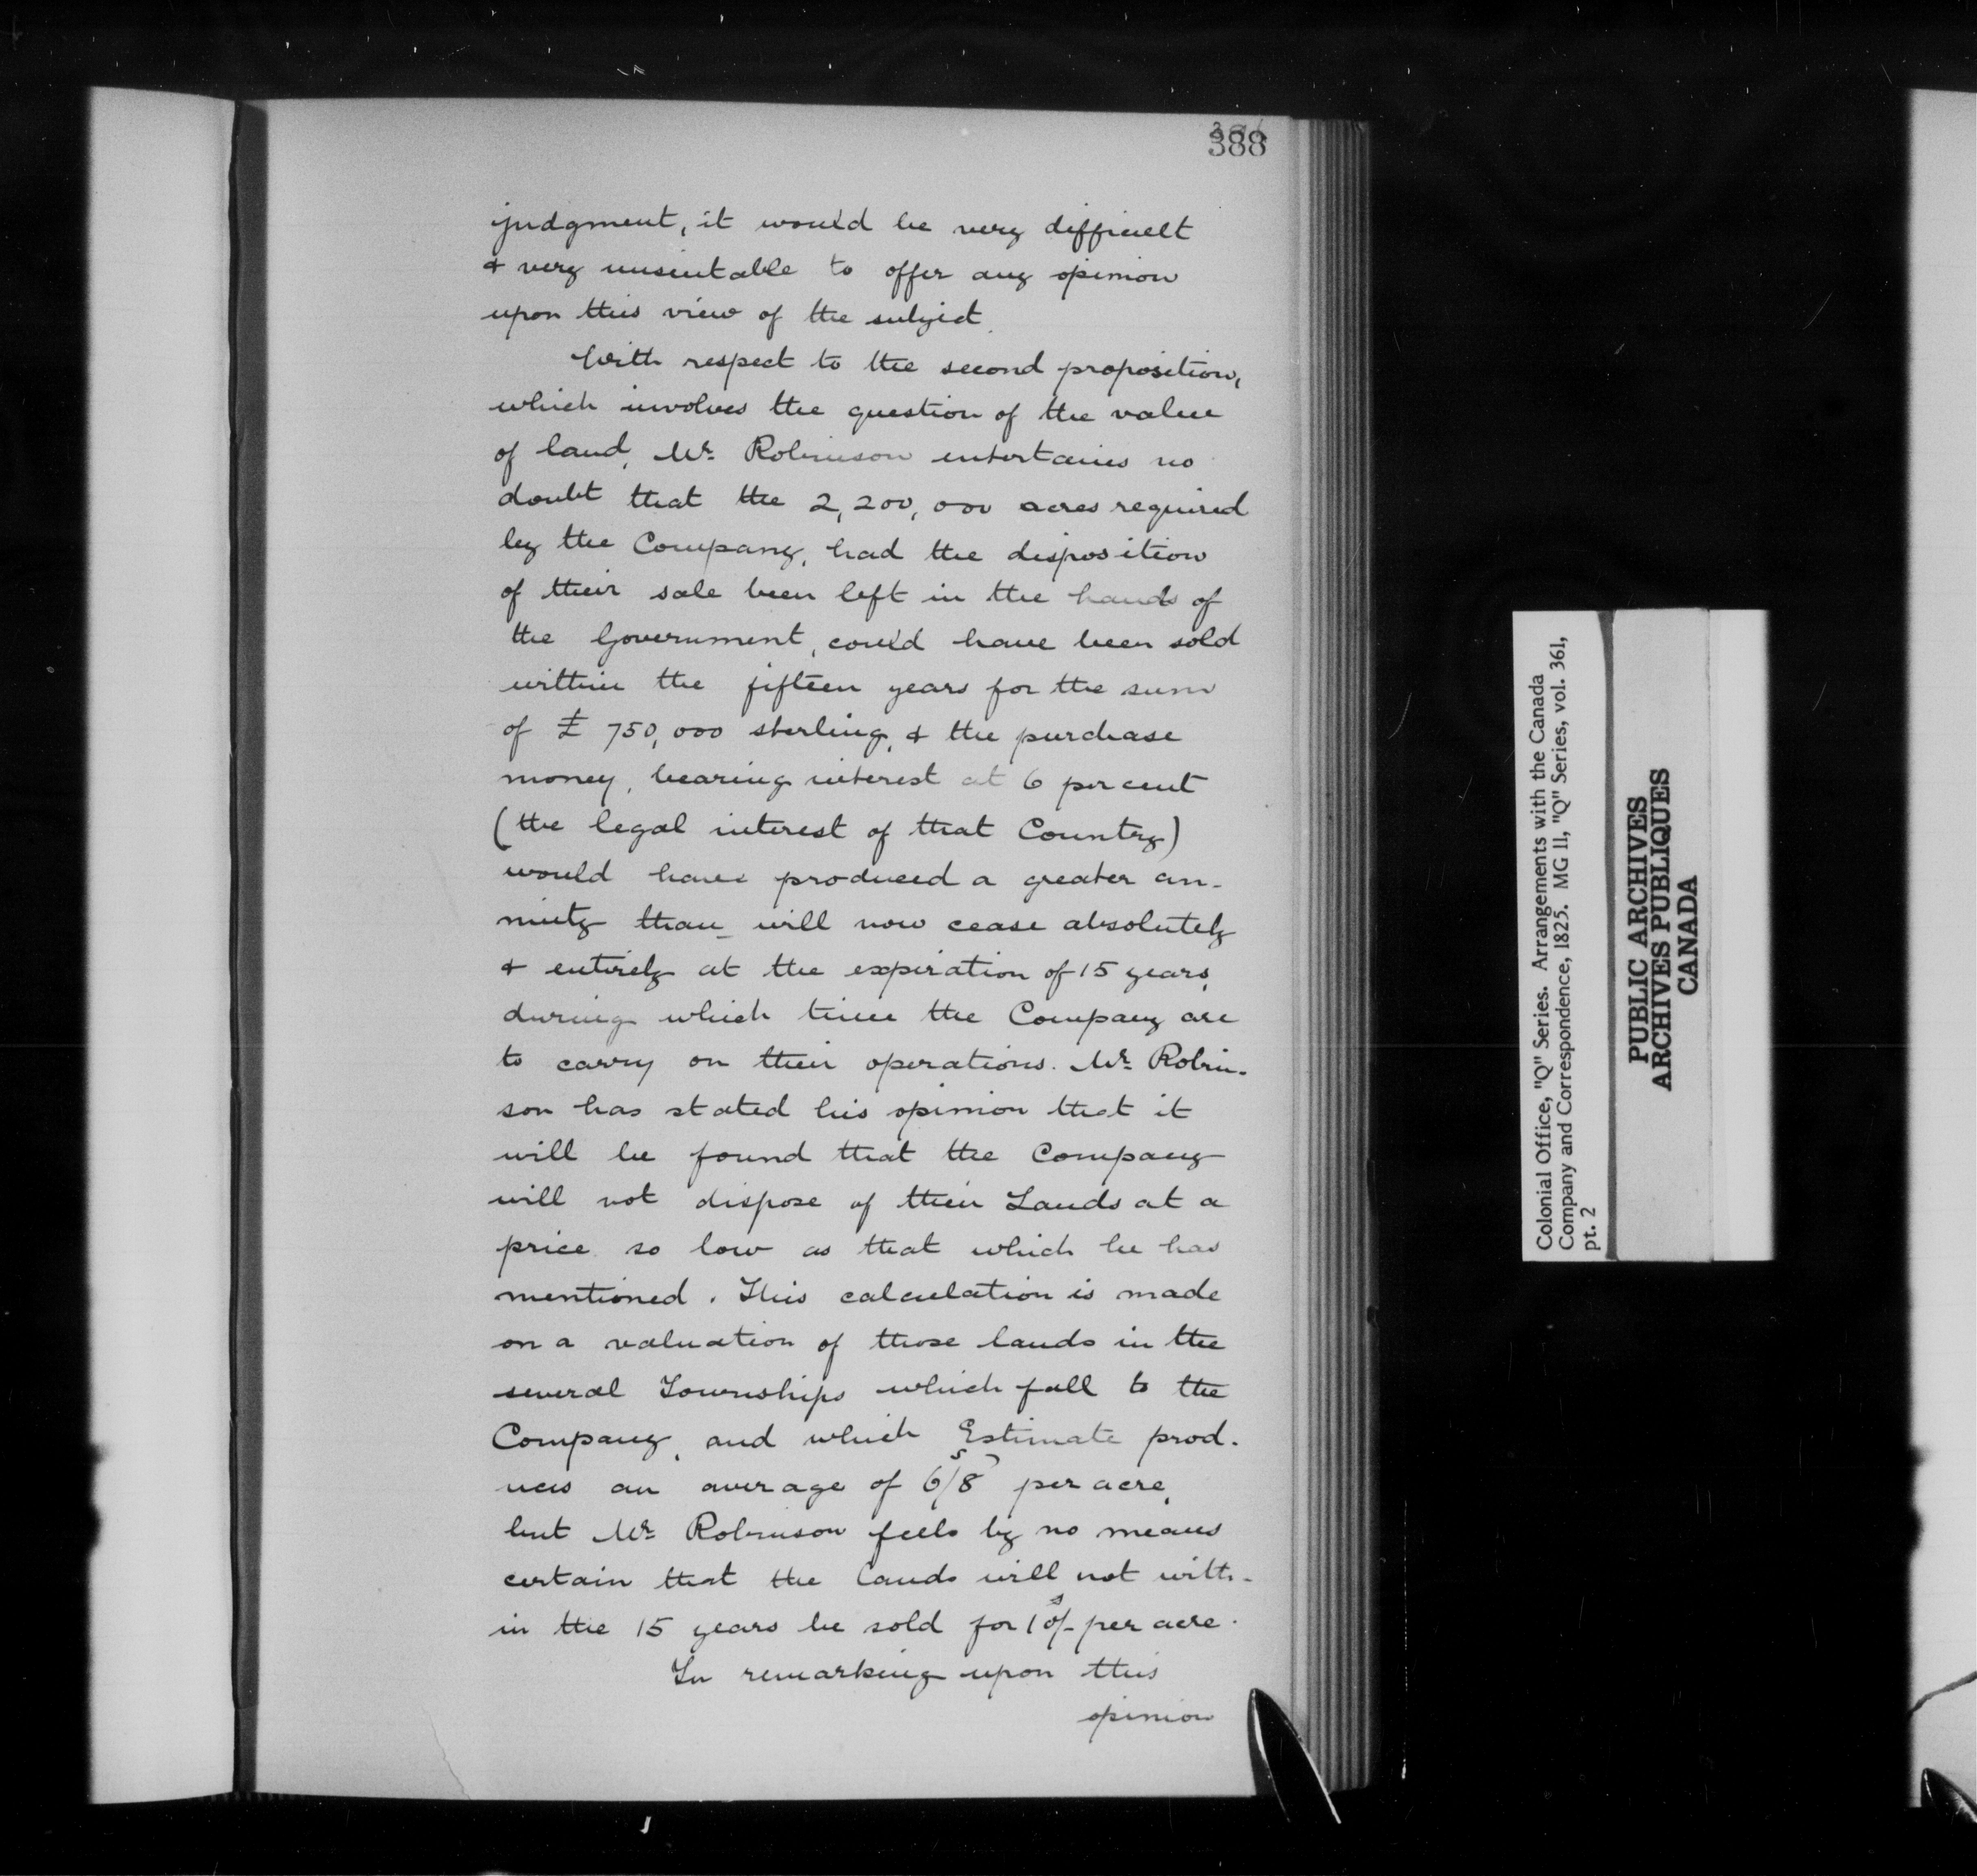 388
judgment, it would be very difficult
& very unsuitable to offer any opinion
upon this view of the subject.
With respect to the second proposition,
which involves the question of the value
of land, Mr. Robinson entertains no
doubt that the 2,200,000 acres required
by the Company, had the disposition
of their sale been left in the hands of
the Government, could have been sold
within the fifteen years for the sum
of £ 750,000 sterling, & the purchase
money, bearing interest at 6 per cent
(the legal interest of that Country)
would have produced a greater an-
nuity than will now cease absolutely
& entirely at the expiration of 15 years,
during which time the Company are
to carry on their operations. Mr. Robin-
son has stated his opinion that it
will be found that the Company
will not dispose of their Lands at a
price so low as that which he has
mentioned. This calculation is made
on a valuation of those lands in the
several Townships which fall to the
Company, and which Estimate prod-
uces an average of 6s/8 per acre,
but Mr. Robinson feels by no means
certain that the Lands will not with-
in the 15 years be sold for 10s/- per acre.
In remarking upon this
opinion
Colonial Office, "Q" Series. Arrangements with the Canada
Company and Correspondence, 1825. MG 11, "Q" Series, vol. 361,
pt. 2
PUBLIC ARCHIVES
ARCHIVES PUBLIQUES
CANADA